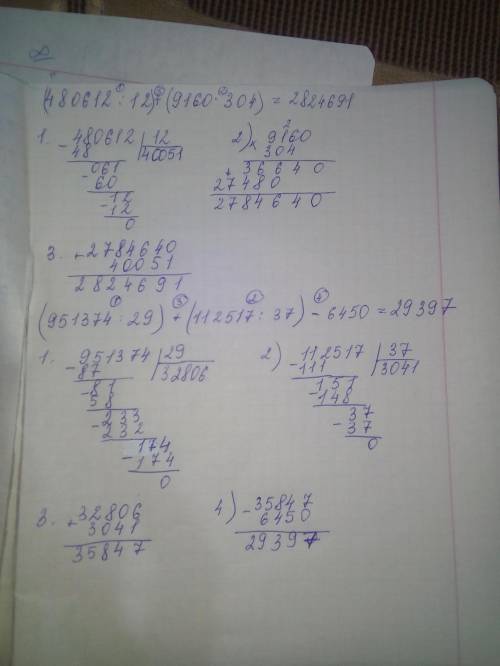 ∞
(480612 : 12) + (9160 · 304) = 2824691
1. - 480612 | 12
48 | 40051
- 061
60
- 12
- 12
0
2) x 9160
304
+ 36640
27480
2784640
3. + 2784640
40051
2824691
(951374 : 29) + (112517 : 37) - 6450 = 29397
1. - 951374 | 29
87 | 32806
- 81
58
- 233
232
- 174
174
0
2) - 112517 | 37
111 | 3041
- 151
148
- 37
37
0
3. + 32806
3041
35847
4) - 35847
6450
29397